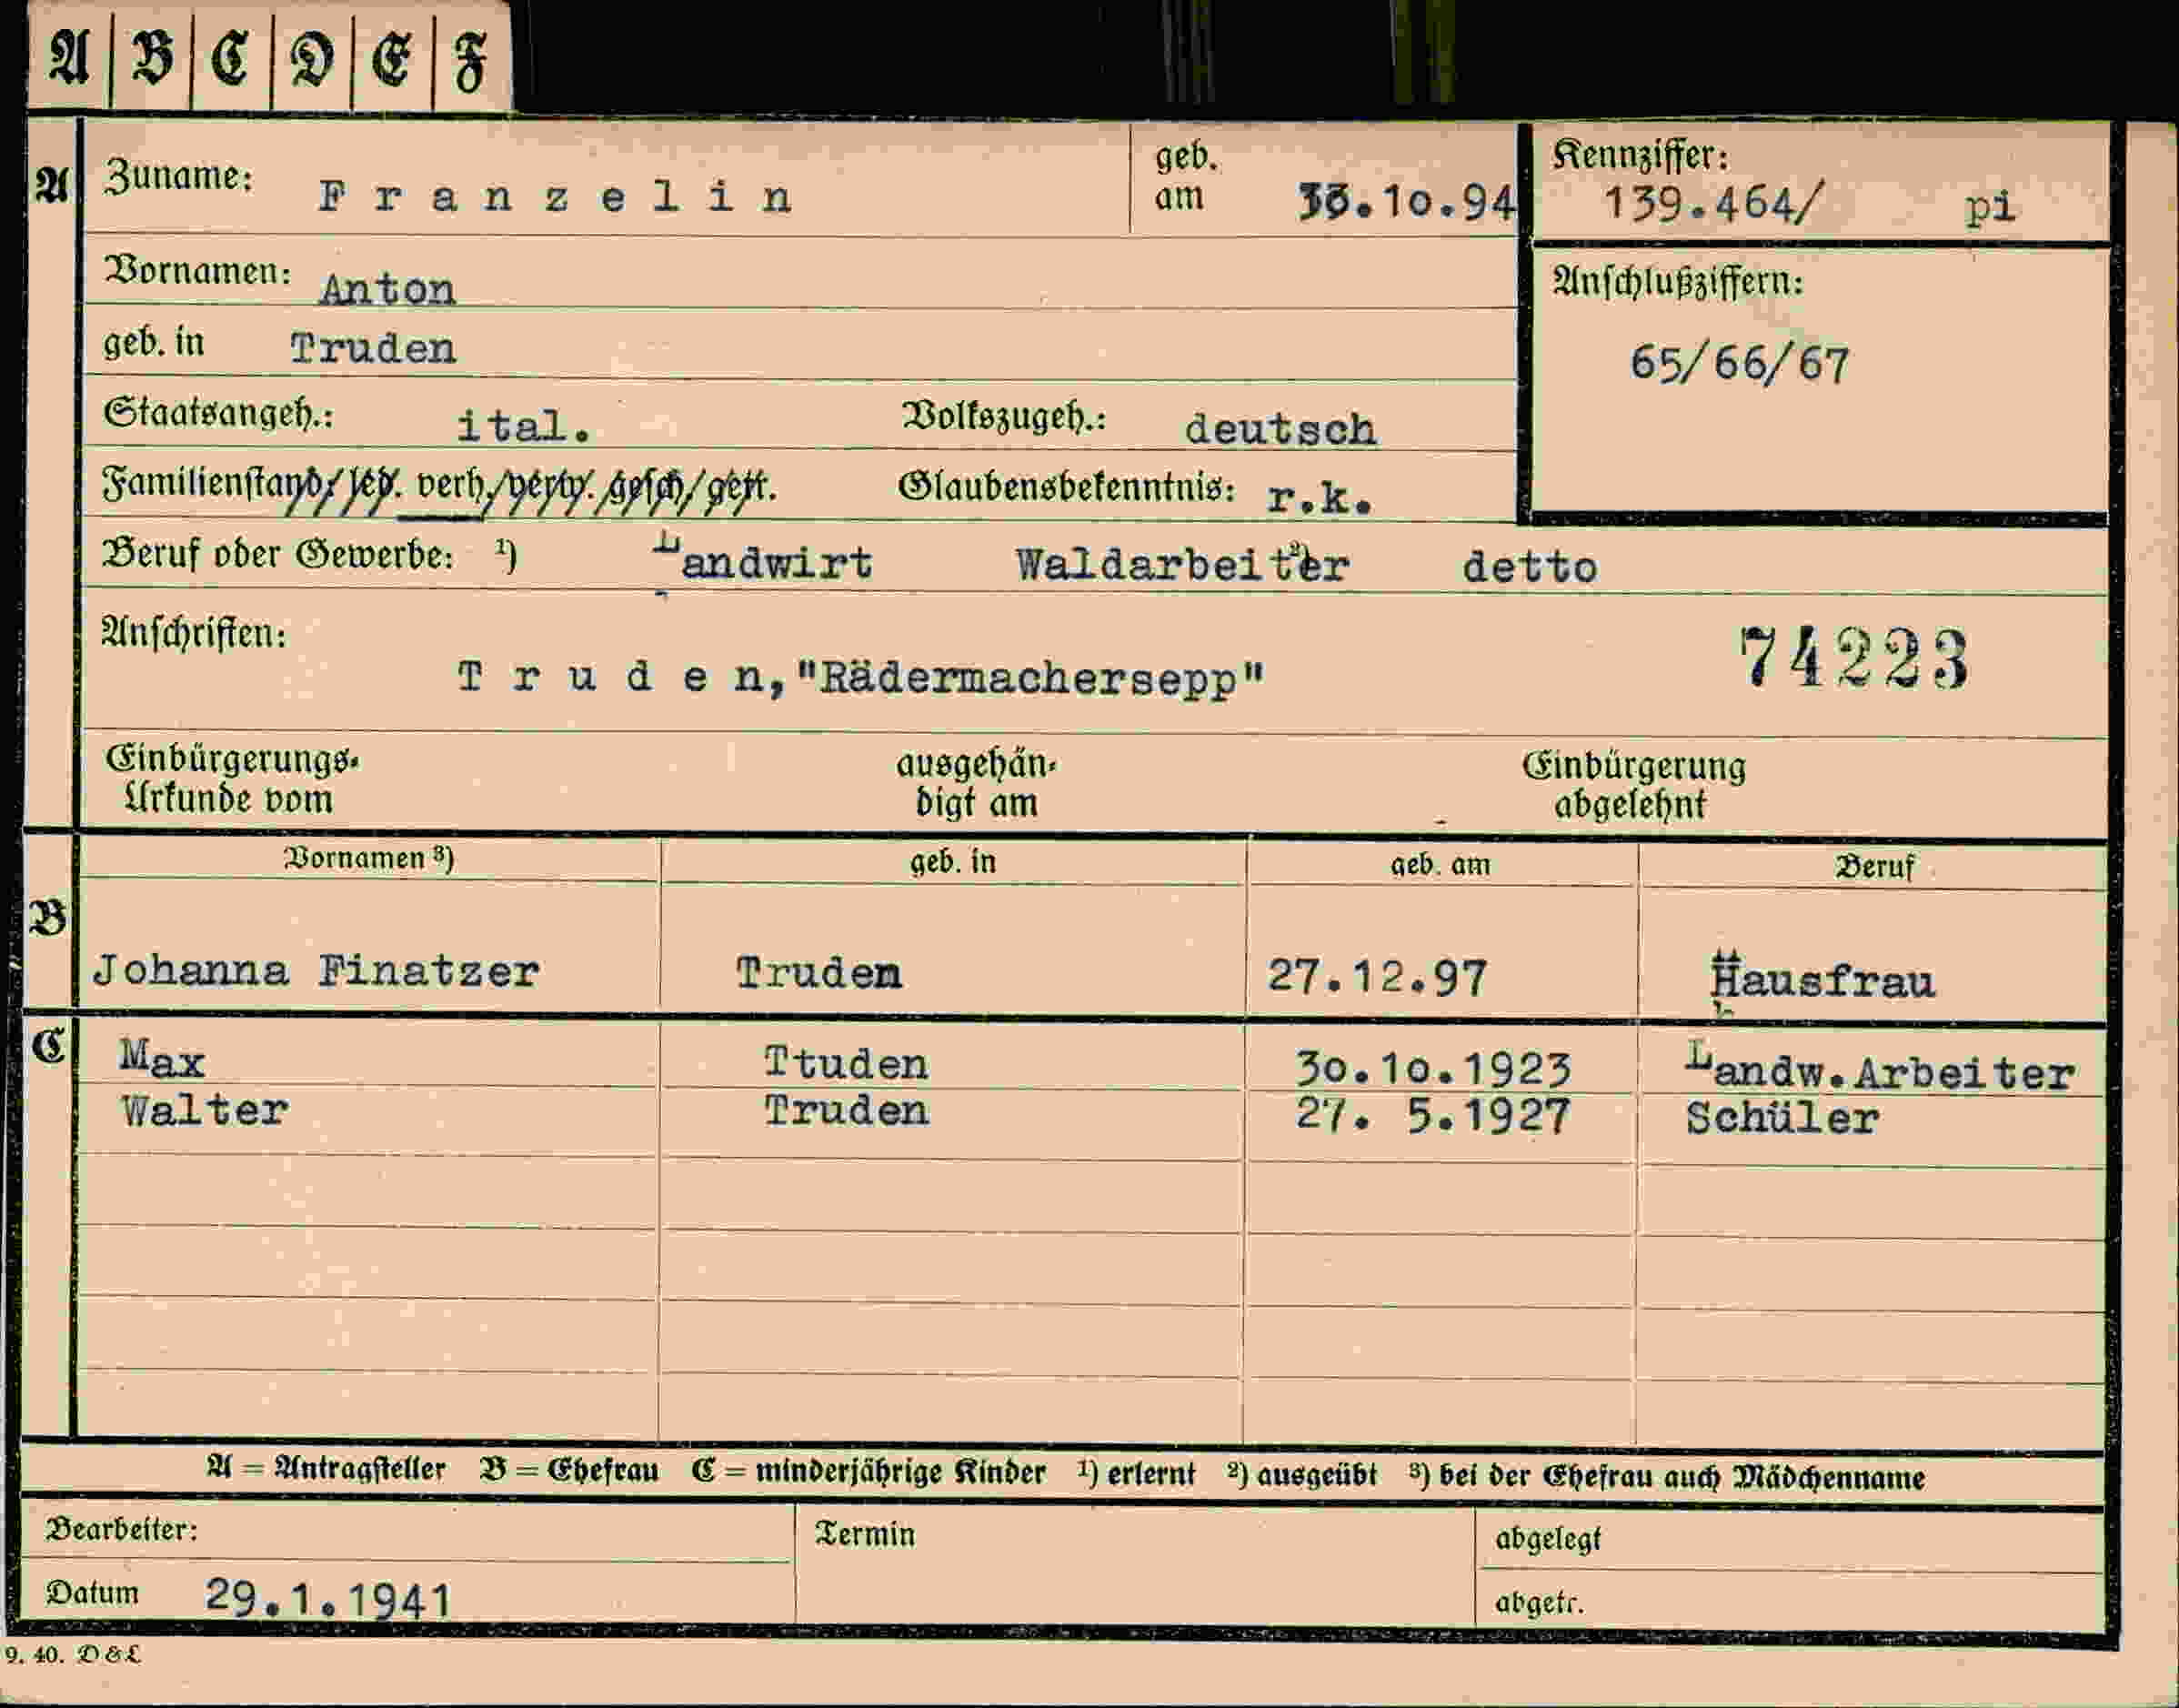 A B C D E F
A Zuname: Franzelin geb. am .10.94 Kennziffer: 139.464/ pi
Vornamen: Anton Anschlußziffern:
geb. in Truden 65/66/67
Staatsangeh.: ital. Volkszugeh.: deutsch
Familienstand/ led. verh./verw. gesch/getr. Glaubensbekenntnis: r.k.
Beruf oder Gewerbe: ¹) Landwirt Waldarbeiter ²) detto
Anschriften: 74223
Truden,"Rädermachersepp"
Einbürgerungs- ausgehän- Einbürgerung
Urkunde vom digt am abgelehnt
Vornamen ³) geb. in geb. am Beruf
B
Johanna Finatzer Truden 27.12.97 Hausfrau
C Max Ttuden 30.10.1923 Landw.Arbeiter
Walter Truden 27. 5.1927 Schüler
A = Antragsteller B = Ehefrau C = minderjährige Kinder ¹) erlernt ²) ausgeübt ³) bei der Ehefrau auch Mädchenname
Bearbeiter: Termin abgelegt
Datum 29.1.1941 abgetr.
9. 40. D & L